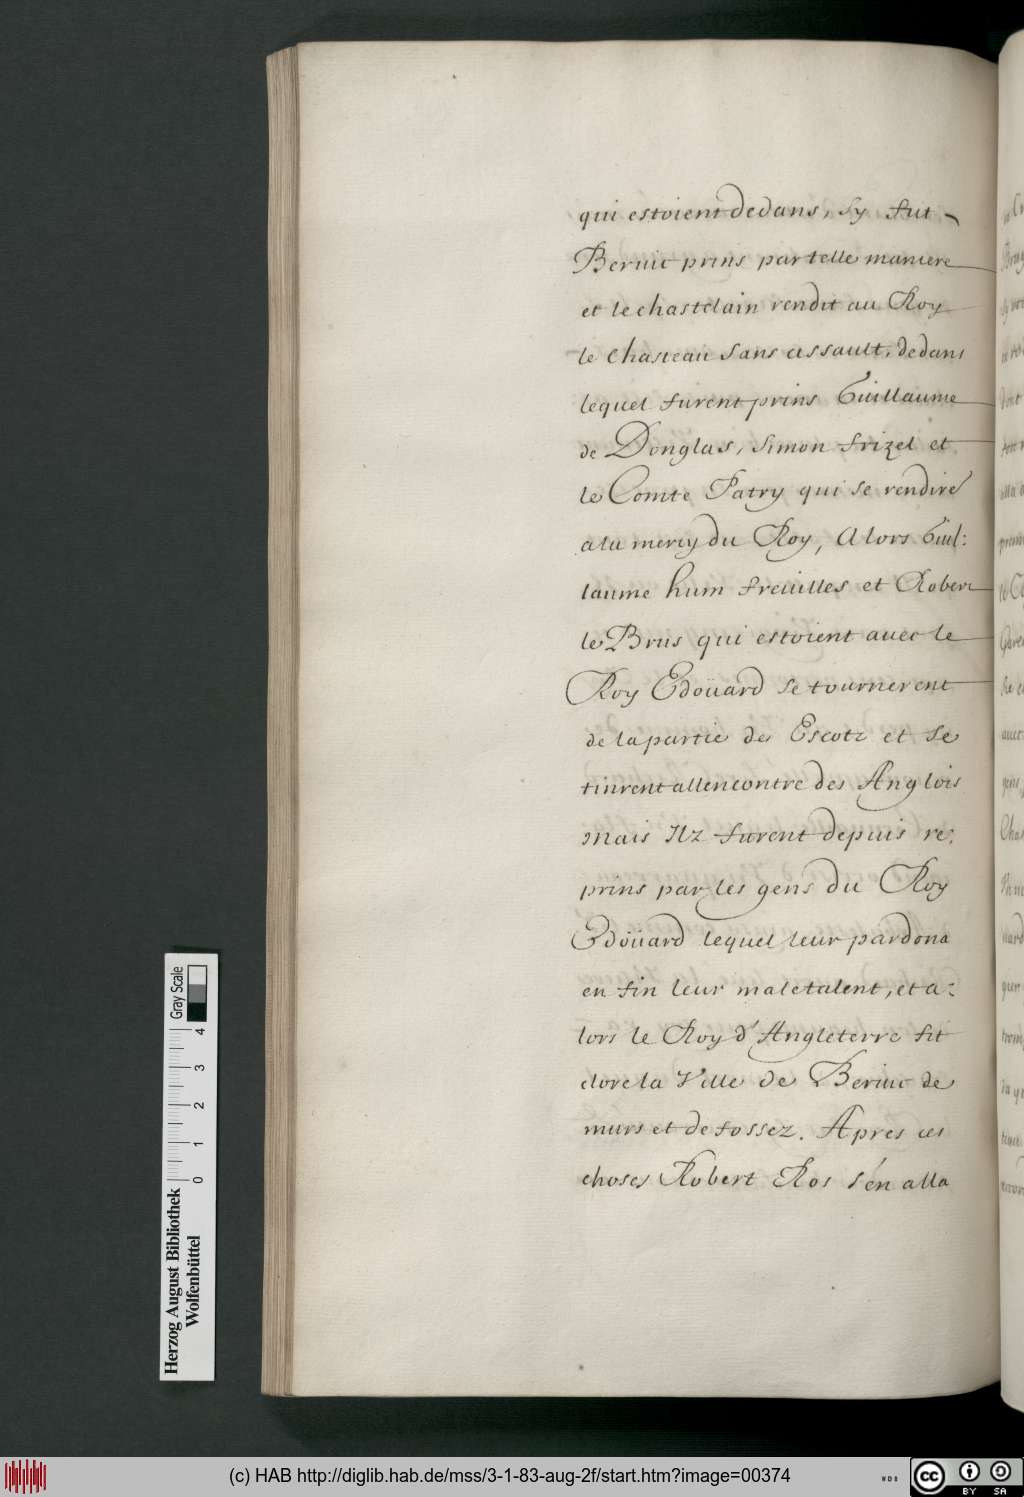 qui estoient dedans, Sy fut
Beruic prins par telle maniere
et le chastelain rendit au Roy
le Chasteau Sans assault, dedans
lequel furent prins Guillaume
de Donglas, Simon frizel et
le Comte Patry qui se rendirẽ
a la mercy du Roy, Alors Guil:
laume hum freuilles et Robert
le Brus qui estoient auec le
Roy Edoüard se tournerent
de la partie des Escotz et se
tinrent allencontre des Anglois
mais Ilz furent depuis re:
prins par les gens du Roy
Edoüard lequel leur pardona
en fin leur maletalent, et a:
lors le Roy d'Angleterre fit
clore la Ville de Beruic de
murs et de fossez. Apres ces
choses Robert Ros s'en alla
Gray Scale
0 1 2 3 4
Herzog August Bibliothek
Wolfenbüttel
(c) HAB http://diglib.hab.de/mss/3-1-83-aug-2f/start.htm?image=00374
cc BY SA